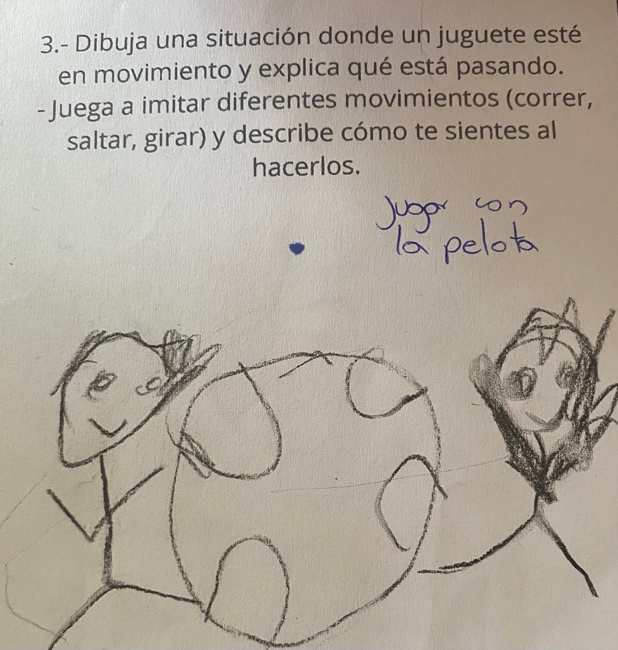 3.- Dibuja una situación donde un juguete esté
en movimiento y explica qué está pasando.
-Juega a imitar diferentes movimientos (correr,
saltar, girar) y describe cómo te sientes al
hacerlos.
Jugar con
la pelota